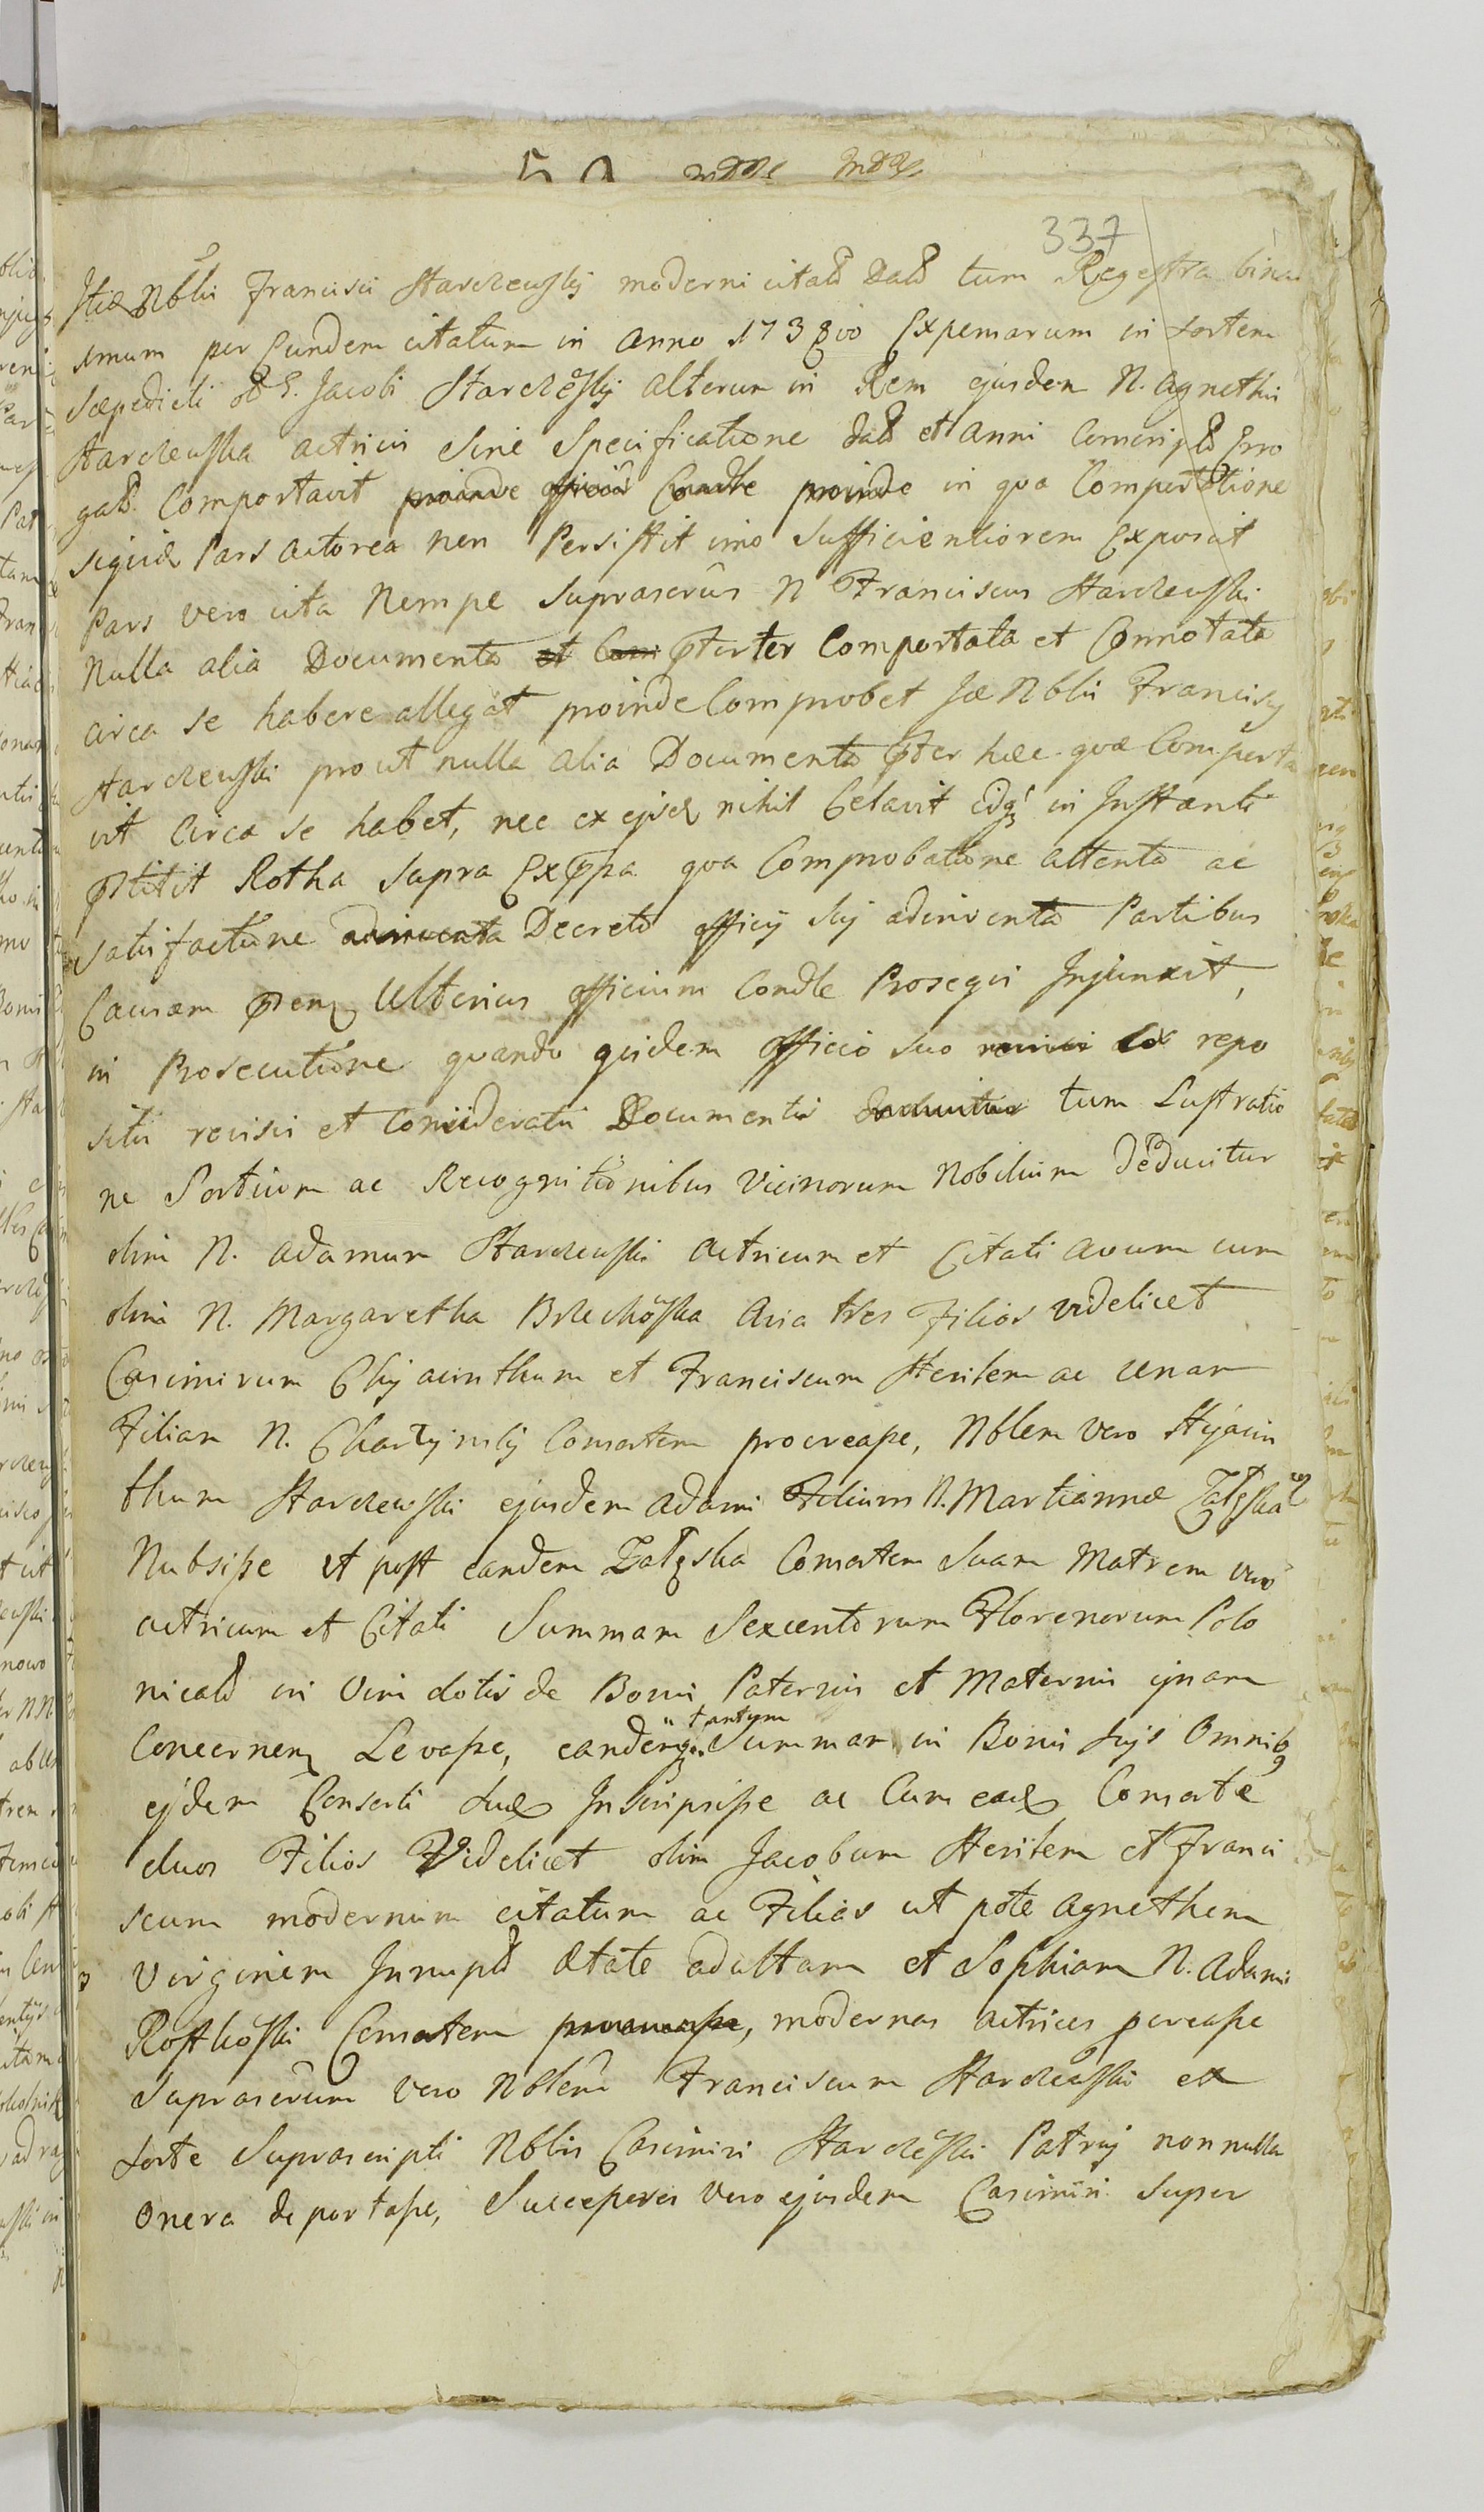 337
Nblis Francisci Starczewskij moderni citati Dato tum Regestra bina
unum per Eundem citatum in Anno 1738vo Expensarum in sortem
Saepedicti Jacobi Starczeskij alterum in Rem ejusdem N. Agnethis
Starczewska actricis Sine Specificatione dato et anni Conscripto Erro
gato. Comportavit proinde officio Condle proinde in qva Comportatione
siquid Pars actorea non Persistit imo Sufficientiorem Exposcit
Pars vero cita Nempe Suprascrus N Franciscus Starczewski
Nulla alia Documenta et Com pterter Comportata et Connotata
circa se habere allegat proinde Comprobet Nblis Franciscq
Starczewski prout nulla alia Documenta pter haec qvae Comporta
vit Circa se habet, nec ex ejsd nihil Celavit idq in Instanti
pstitit Rotha Supra Exppa qva Comprobatione attenta ac
satisfactione adinventa Decreto officij Sui adinventa Partibus
Causam psenq Ulterius officium Condle Proseqvi Injunxit,
in Prosecutione quando quidem officio Suo repo
sitis revisis et Consideratis Documentis tum Lustratio
ne Sortium ac Recognitionibus Vicinorum Nobilium Deducitur
olim N. Adamum Starczewski Actricum et Citati avum cum
olim N. Margaretha Brzechoska Avia tres Filios videlicet
Casimirum Chijacinthum et Franciscum Sterilem ac unam
Filiam N. Charzynskij Consortem procreasse, Nblem vero Hyacin
thum Starczewski ejusdem Adami Filium N. Martiannae Załęska
Nubsisse et post eandem Załęska Consortem Suam Matrem vero
actricum et Citati Summam Sexcentorum Florenorum Polo
nicalo in Vim dotis de Bonis Paternis et Maternis ipsam
Concernenq Levasse, eandemq tantum Summam in Bonis Suis Omnibq
ejdem Consorti Suae Inscripsisse ac Cum eade Consorte
duos Filios Videlicet olim Jacobum Sterilem et Franci
scum modernum citatum ac Filias ut pote Agnethem
Virginem Innupto aetate adultam et Sophiam N. Adami
Rostkoski Consortem procreasse, modernas actrices pereasse
Suprascrum vero Nblem Franciscum Starczewski ex
sorte Suprascripti Nblis Casimiri Starczeski Patruj nonnulla
onera deportasse, Succepores vero ejusdem Casimiri Super